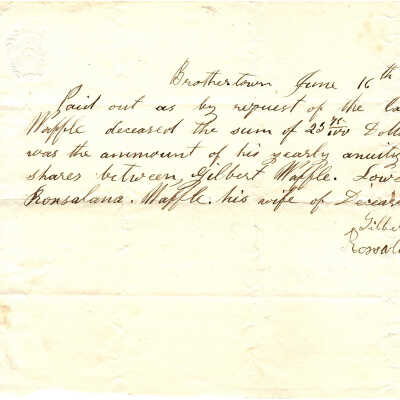 Brothertown June 16th
Paid out as by request of the
Waffle deceased the sum of 23 45/100
was the ammount of his yearly anuity
shares between, Gilbert Waffle.
Ronsalana. Waffle. his wife of